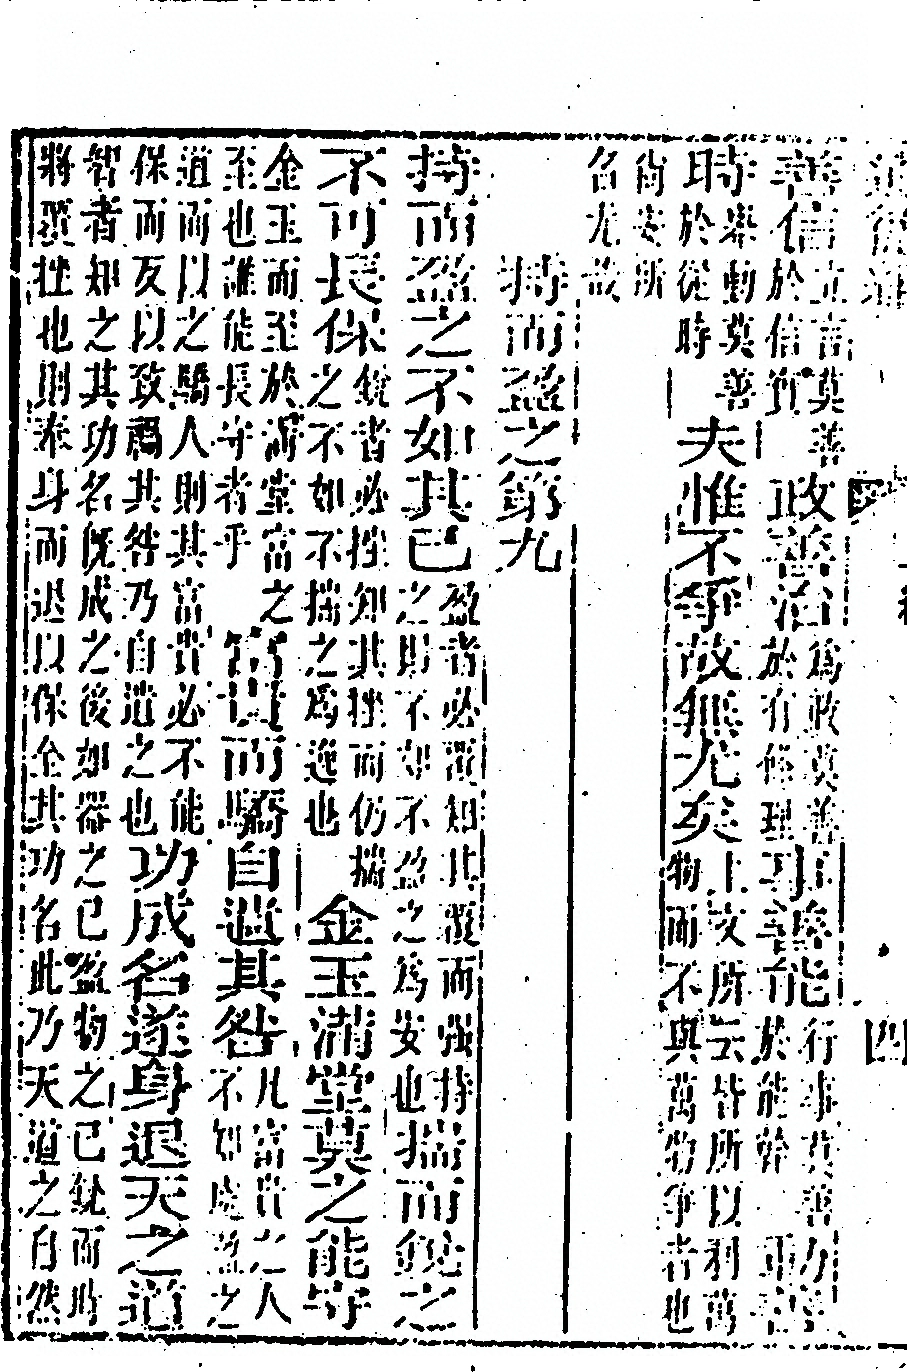 善信立言莫善於信實政善治為政莫善於有條理事善能行事莫善於能幹動善
時舉動莫善於從時夫惟不爭故無尤矣上文所云皆所以利萬物而不與萬物爭者也
尚安所名尤哉
持而盈之第九
持而盈之不如其已盈者必覆知其覆而强持之則不如不盈之為安也揣而銳之
不可長保銳者必挫知其挫而仍揣之不如不揣之為逸也金玉滿堂莫之能守
金玉而至於滿堂富之至也誰能長守者乎富貴而驕自遺其咎凡富貴之人不知處盈之
道而以之驕人則其富貴必不能保而反以致禍其咎乃自遺之也功成名遂身退天之道
智者知之其功名既成之後如器之已盈物之已銳而時將覆挫也則奉身而退以保全其功名此乃天道之自然
四